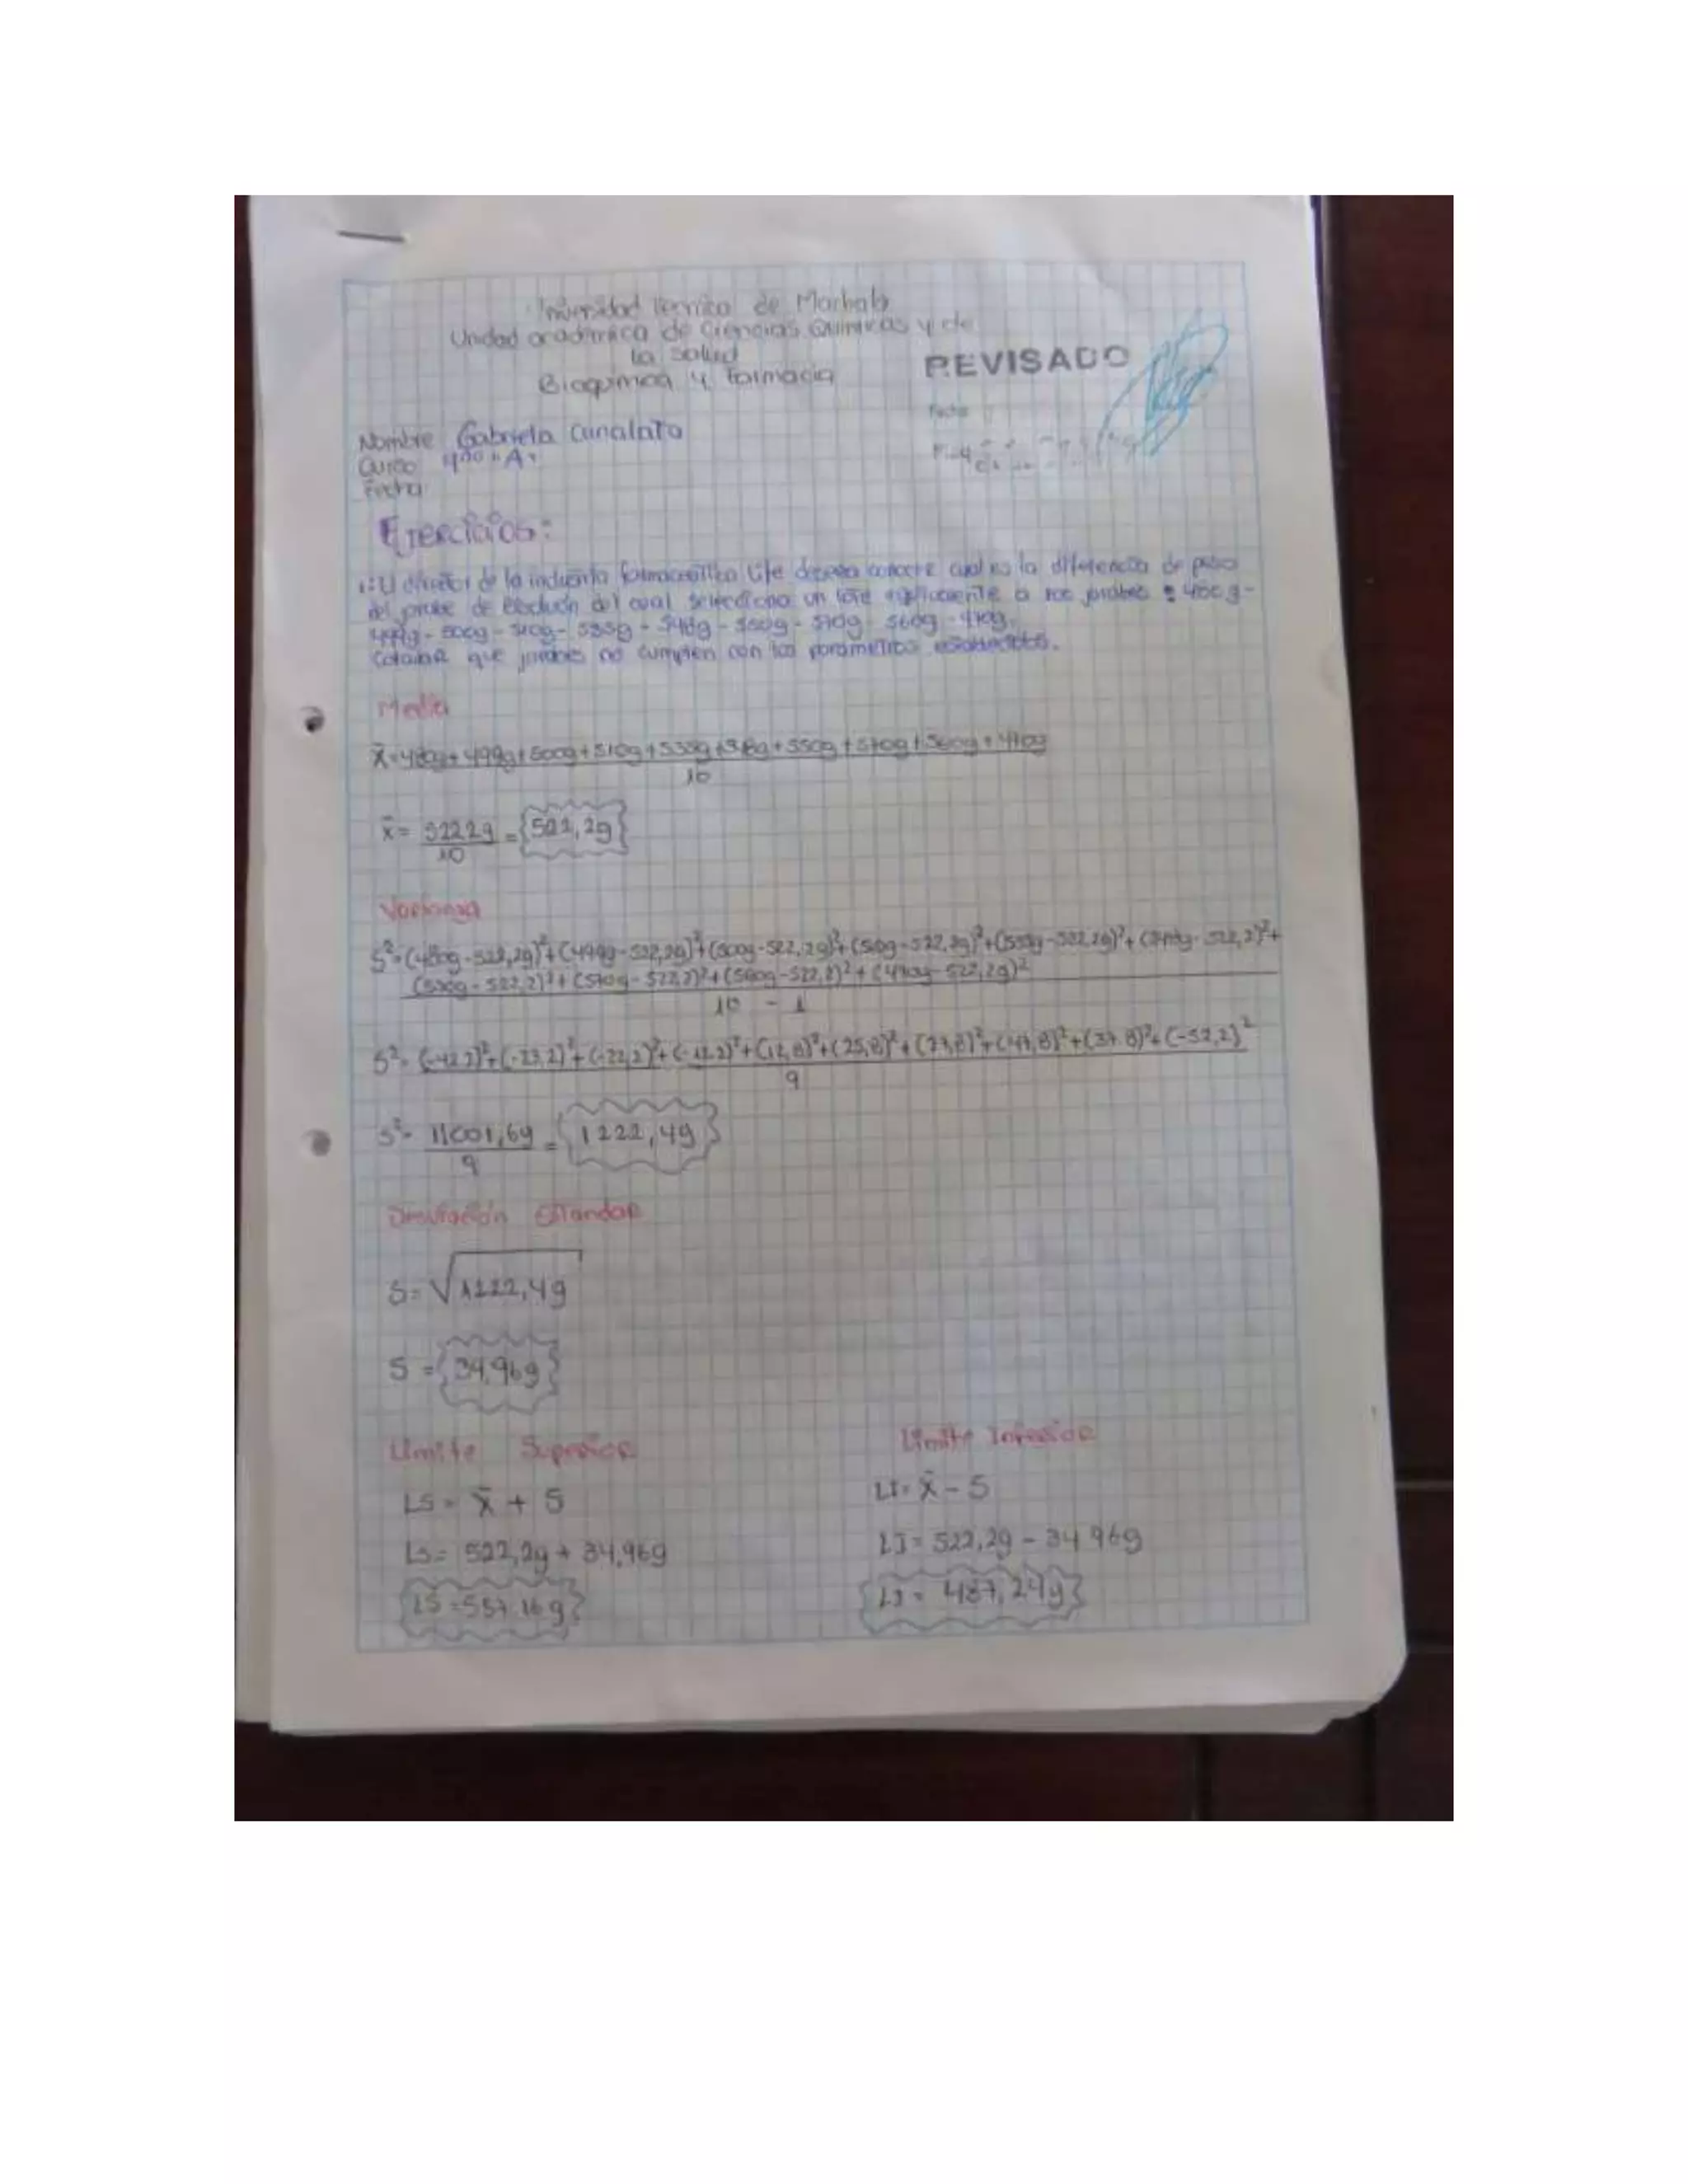 Universidad Técnica de Machala
Unidad académica de Ciencias Químicas y de
la Salud
Bioquímica y Farmacia
REVISADO
Fecha
Nombre Gabriela Cunalata
Curso 4to "A"
Fecha
Ejercicios:
1: El director de la industria farmacéutica Life desea conocer cual es la diferencia de peso
del jarabe de del cual selecciona un lote a 100 jarabes : 480g-
499g - 500g - 510g - 535g - 548g - 550g - 570g - 560g - 470g.
que jarabes no cumplen con los parametros establecidos.
Media
x̄ = 480g + 499g + 500g + 510g + 535g + 548g + 550g + 570g + 560g + 470g
10
x̄ = 5222g = 522,2g
10
Varianza
S² = (480g - 522,2g)² + (499g - 522,2g)² + (500g - 522,2g)² + (510g - 522,2g)² + (535g - 522,2g)² + (548g - 522,2)² +
(550g - 522,2)² + (570g - 522,2)² + (560g - 522,2)² + (470g - 522,2g)²
10 - 1
S² = (-42,2)² + (-23,2)² + (-22,2)² + (-12,2)² + (12,8)² + (25,8)² + (27,8)² + (47,8)² + (37,8)² + (-52,2)²
9
S² = 11001,6g = 1222,4g
9
Desviación Estandar
S = √1222,4g
S = 34,96g
Limite Superior Limite Inferior
LS = x̄ + S LI = x̄ - S
LS = 522,2g + 34,96g LI = 522,2g - 34,96g
LS = 557,16g LI = 487,24g